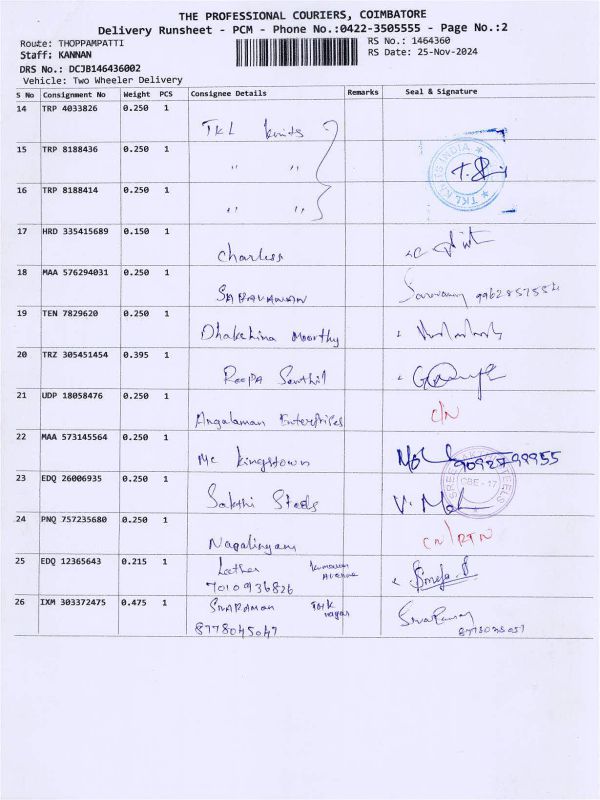 THE PROFESSIONAL COURIERS, COIMBATORE
Delivery Runsheet - PCM - Phone No.:0422-3505555 - Page No.:2
Route: THOPPAMPATTI
RS No.: 1464360
Staff: KANNAN
RS Date: 25-Nov-2024
DRS No.: DCJB146436002
Vehicle: Two Wheeler Delivery
S No Consignment No Weight PCS Consignee Details Remarks Seal & Signature
14 TRP 4033826 0.250 1
TKL knits
15 TRP 8188436 0.250 1
" "
TKL KNITS INDIA
16 TRP 8188414 0.250 1
" "
17 HRD 335415689 0.150 1
Charless
18 MAA 576294031 0.250 1
SARAVANAN
19 TEN 7829620 0.250 1
Dhakshina Moorthy
20 TRZ 305451454 0.395 1
RooPA Senthil
21 UDP 18058476 0.250 1
Angalaman Enterprises C/N
22 MAA 573145564 0.250 1
Mc kingstown
23 EDQ 26006935 0.250 1
CBE - 17
Sakthi Steels V. Moh
24 PNQ 757235680 0.250 1
Nagalingam CN/RTN
25 EDQ 12365643 0.215 1
Avenue
7010936826
26 IXM 303372475 0.475 1
SIVARAMAN nagar
8778045047